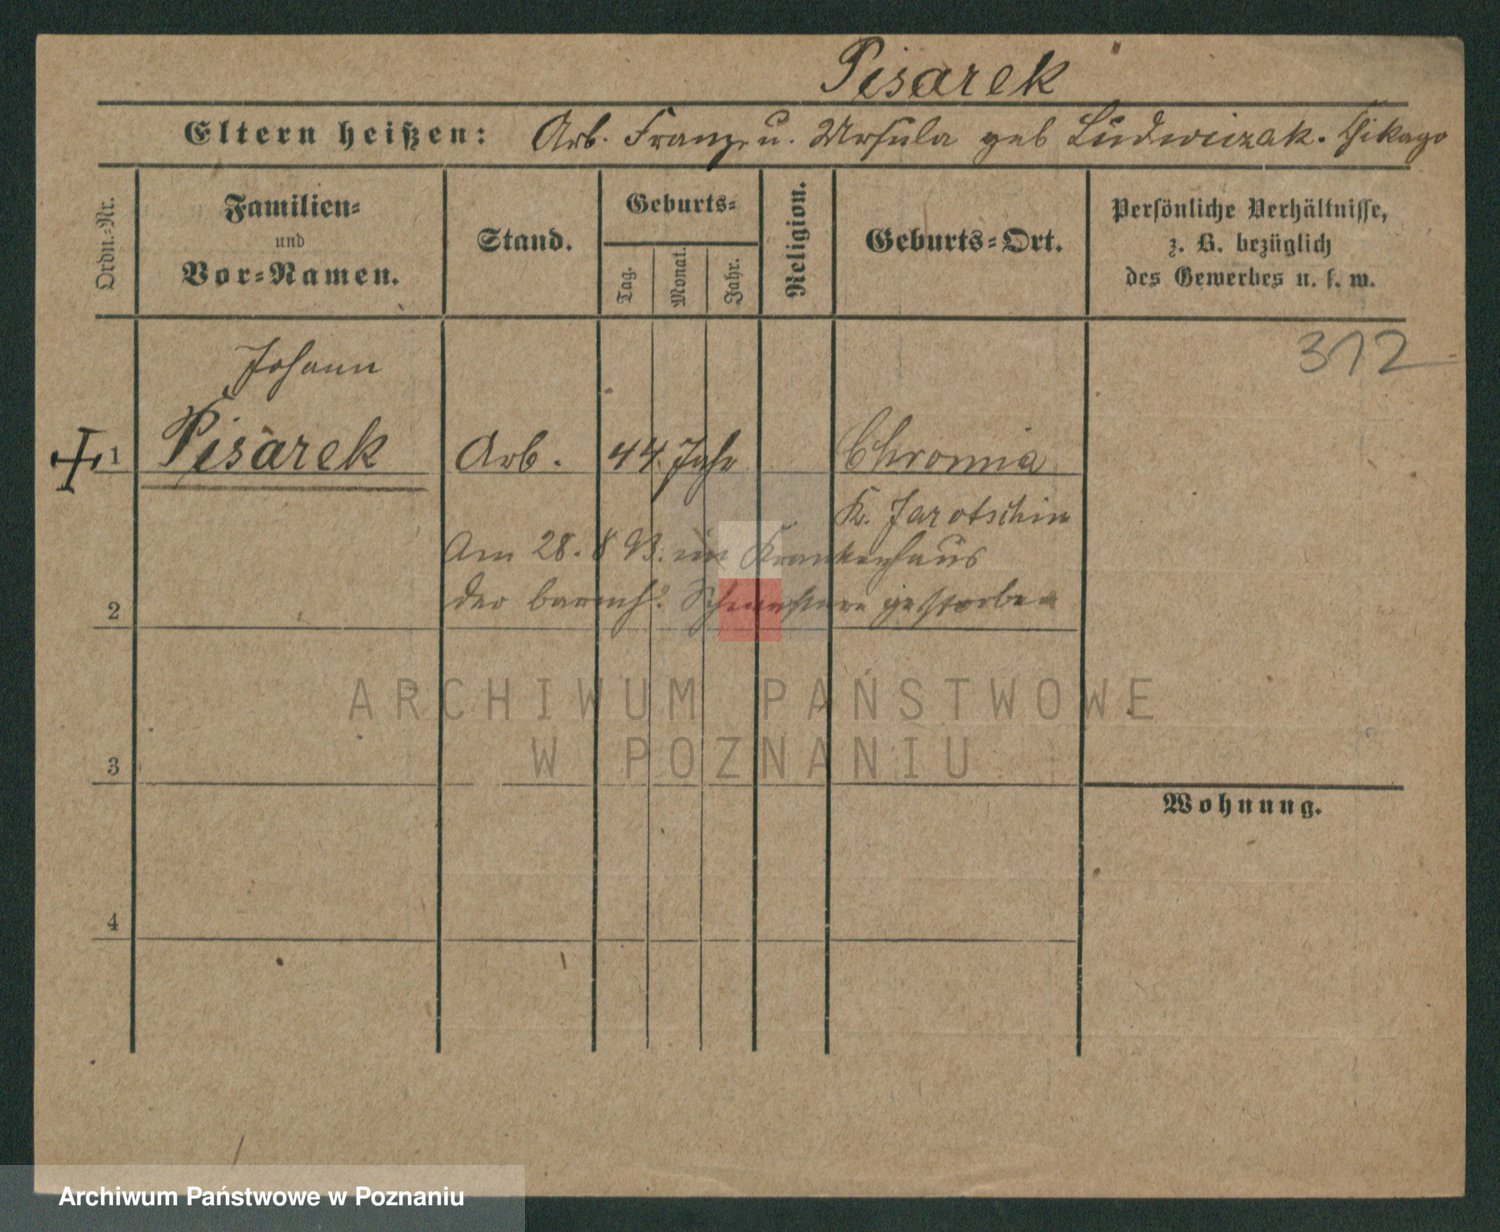 Pisarek
Eltern heißen: Arb. Franz u. Ursula geb Ludwiczak. Chikago
Ordn.=Nr.
Familien=
und
Vor=Namen.
Stand.
Geburts=
Tag.
Monat.
Jahr.
Religion.
Geburts=Ort.
Persönliche Verhältnisse,
z. B. bezüglich
des Gewerbes u. s. w.
312
Johann
1 Pisarek Arb. 44 Jahr
K. Jarotschin
Am 28. 8 93. im Krankenhaus
2 der barmh. Schwestern gestorben
ARCHIWUM PAŃSTWOWE
W POZNANIU
3
Wohnung.
4
Archiwum Państwowe w Poznaniu